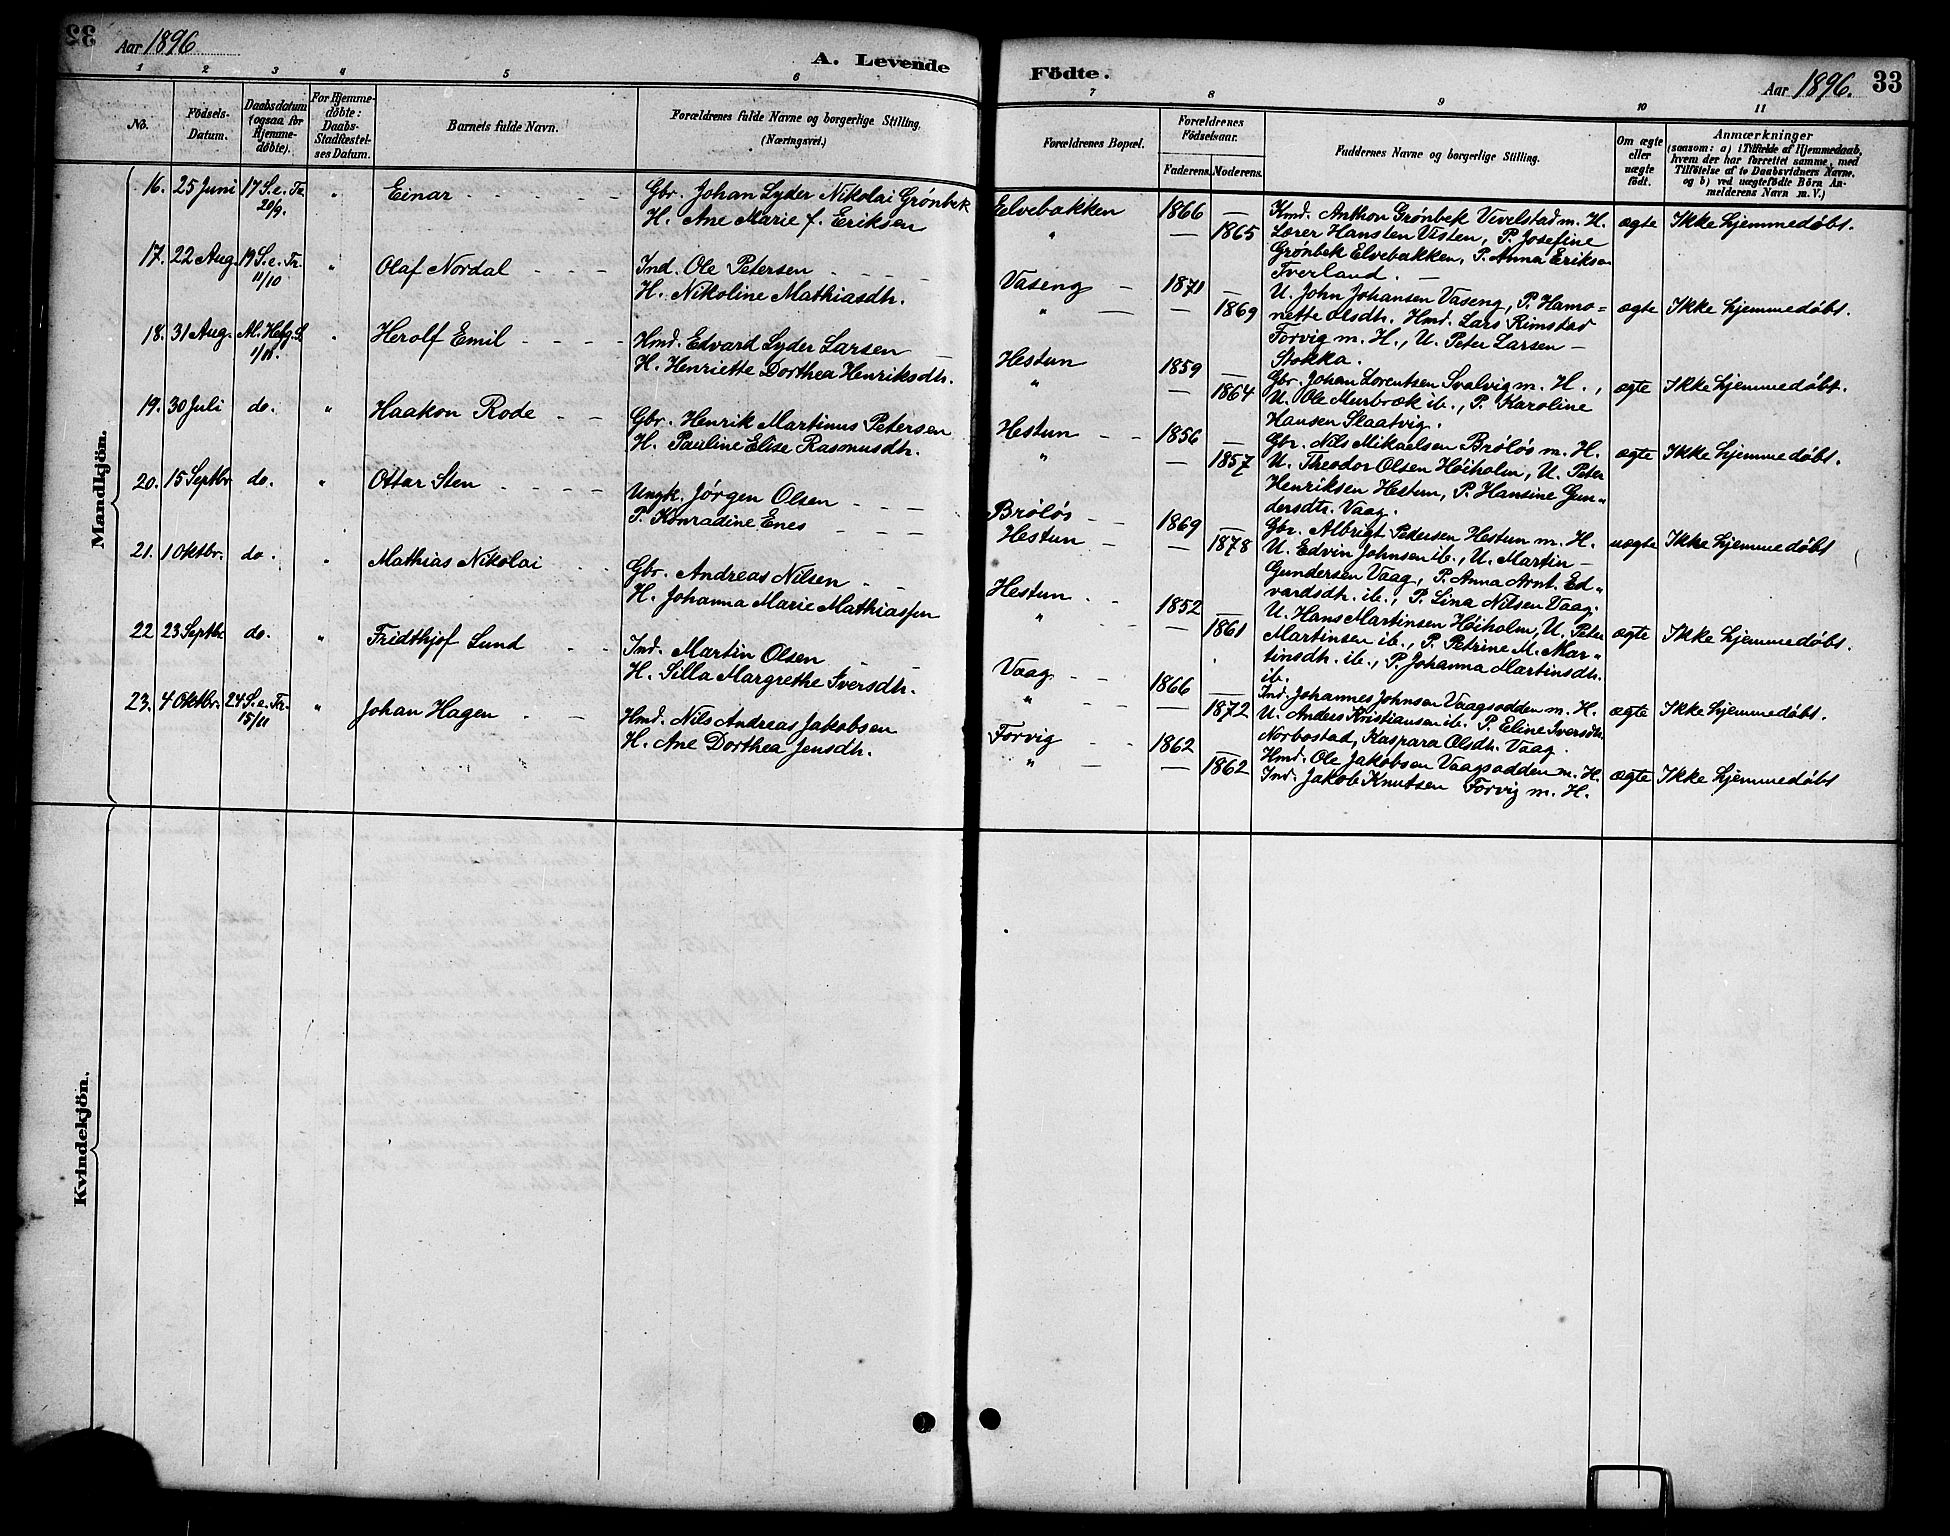 33
Aar 1896
A. Levende
1 2 3 4 5 6
No.
Födsels-
Datum.
Daabsdatum
(ogsaa for
Hjemme-
döbte).
For Hjemme-
döbte:
Daabs-
Stadfæstel-
ses Datum.
Barnets fulde Navn.
Forældrenes fulde Navne og borgerlige Stilling.
(Næringsvei.)
Mandkjön.
16. 25 Juni 17 S.e.Tr. 20/9. " Einar
Gbr. Johan Lyder Nikolai Grønbek
H. Ane Marie f. Eriksen
17. 22 Aug. 19 S.e.Tr. 11/10 " Olaf Nordal
Ind. Ole Petersen
H. Nikoline Mathiasdtr.
18. 31 Aug. Al. Helg. S. 1/11. " Herolf Emil
Hmd. Edvard Lyder Larsen
H. Henriette Dorthea Henriksdtr.
19. 30 Juli do. " Haakon Rode
Gbr. Henrik Martinus Petersen
H. Pauline Elise Rasmusdtr.
20. 15 Septbr. do. " Ottar Sten
Ungk. Jørgen Olsen
P. Konradine Enes
21. 1 Oktbr. do. " Mathias Nikolai
Gbr. Andreas Nilsen
H. Johanna Marie Mathiassen
22 23 Septbr. do. " Fridthjof Lund
Ind. Martin Olsen
H. Silla Margrethe Iversdtr.
23. 4 Oktbr. 24 S.e.Tr. 15/11 " Johan Hagen
Hmd. Nils Andreas Jakobsen
H. Ane Dorthea Jensdtr.
Kvindekjön.
Födte.
Aar 1896. 33
7 8 9 10 11
Forældrenes Bopæl.
Forældrenes
Födselsaar.
Faderens. Moderens.
Faddernes Navne og borgerlige Stilling.
Om ægte
eller
uægte
födt.
Anmærkninger
(saasom: a) i Tilfælde af Hjemmedaab,
hvem der har forrettet samme, med
Tilföielse af to Daabsvidners Navne.
og b) ved uægtefödte Börn An-
melderens Navn m. V.)
Elvebakken 1866 — Kmd. Anthon Grønbek Vevelstad m. H. ægte Ikke hjemmedøbt.
" — 1865 Lærer Hansten Visten, P. Josefine
Grønbek Elvebakken, P. Anna Eriksen
Tverland. —
Vaseng 1871 — U. John Johansen Vaseng, P. Hamo-
" — 1869 nette Olsdtr. Hmd. Lars Rimstad ægte Ikke hjemmedøbt.
Forvig m. H., U. Peter Larsen —
Stokka.
Hestun 1859 — Gbr. Johan Lorentsen Svalvig m. H.,
" — 1864 U. Ole Murbræk ib., P. Karoline ægte Ikke hjemmedøbt.
Hansen Slaatvig.
Hestun 1856 — Gbr. Nils Mikaelsen Brøløs m. H.
" — 1857 U. Theodor Olsen Høiholm, U. Peter ægte Ikke hjemmedøbt.
Henriksen Hestun, P. Hansine Gun-
dersdtr. Vaag.
Brøløs 1869 — Gbr. Albrigt Pedersen Hestun m. H.
Hestun — 1878 U. Edvin Johnsen ib., U. Martin — uægte Ikke hjemmedøbt
Gundersen Vaag, P. Anna Arnt. Ed-
vardsdtr. ib., P. Lina Nilsen Vaag.
Hestun 1852 U. Hans Martinsen Høiholm, U. Peter
" — 1861 Martinsen ib., P. Petrine M. Mar- ægte Ikke hjemmedøbt.
tinsdtr. ib., P. Johanna Martinsdtr.
ib.
Vaag 1866 — Ind. Johannes Johnsen Vaagsodden m. H.
" — 1872 U. Anders Kristiansen ib. P. Eline Iversdtr. ægte Ikke hjemmedøbt.
Norbostad, Kaspara Olsdtr. Vaag.
Forvig 1862 — Hmd. Ole Jakobsen Vaagsodden m. H.
" — 1862 Ind. Jakob Knutsen Forvig m. H. ægte Ikke hjemmedøbt